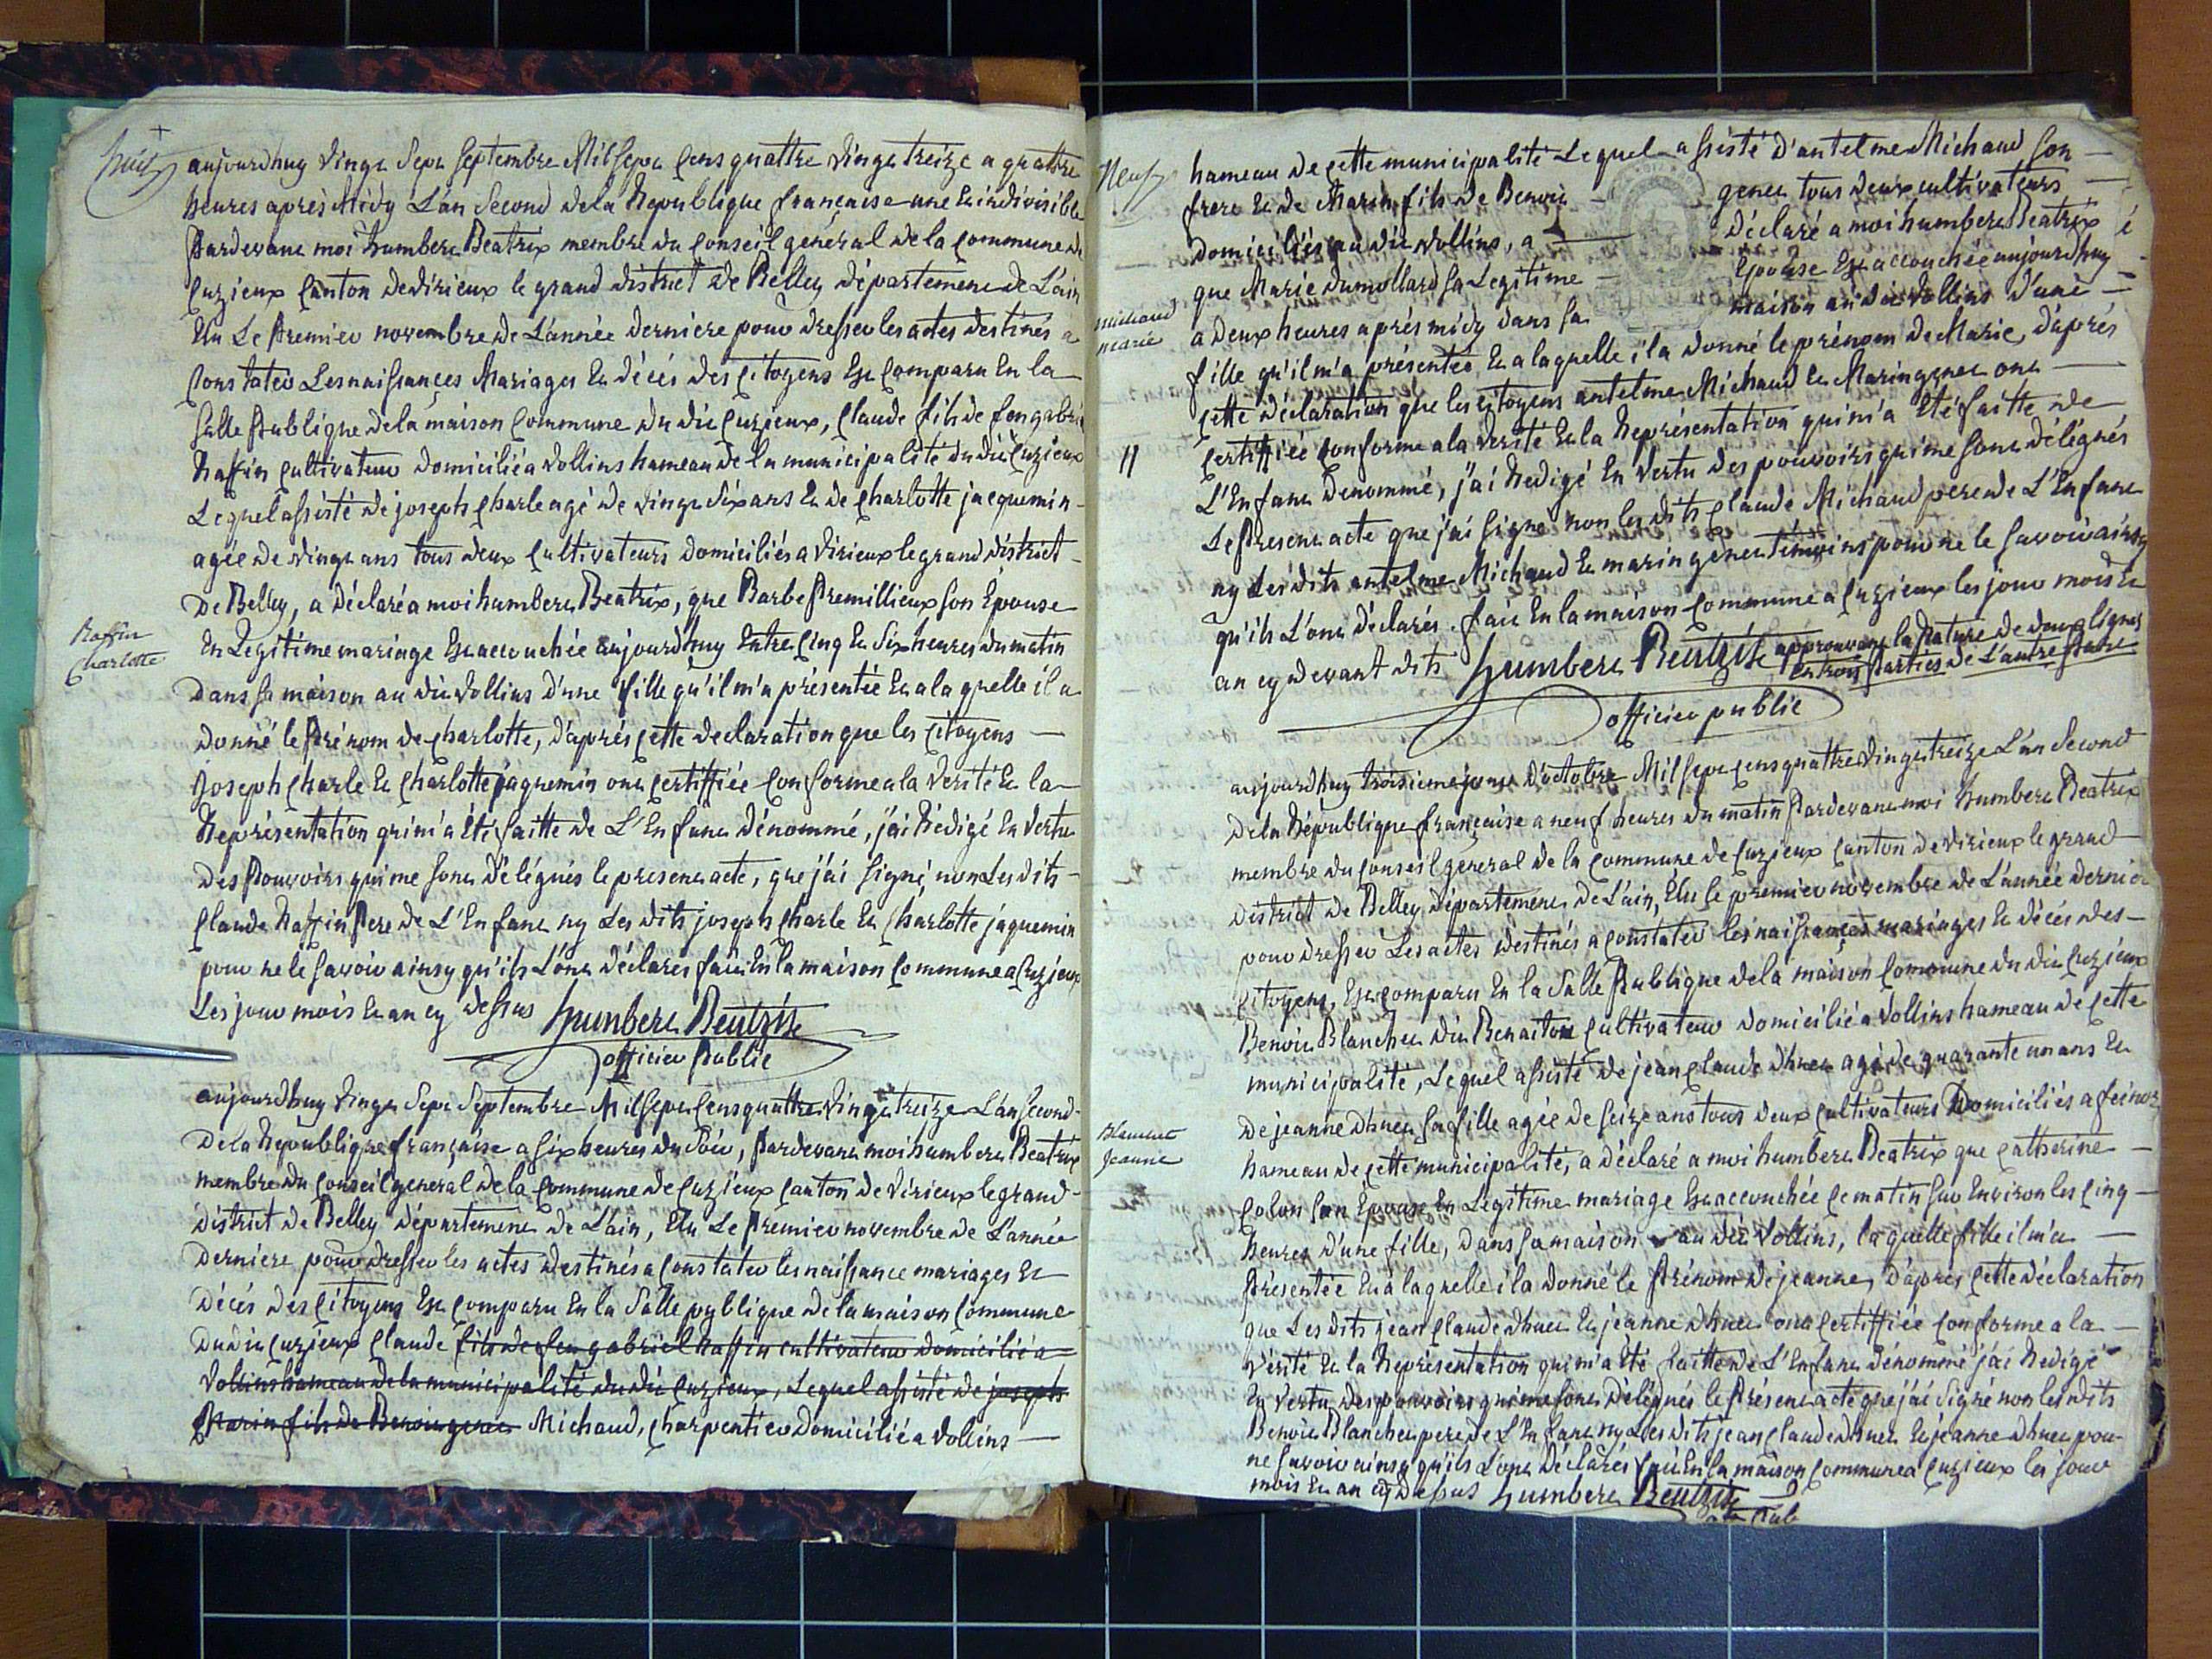 huit
aujourdhuy vingt sept septembre Mil sept cens quattre vingt treize a quattre
heures après Midy L'an Second de la Republique française une et indivisible
Pardevant moi humbert Beatrix membre du conseil général de la commune de
Cuzieux Canton de Virieux le grand district de Belley département de L'ain
Elu Le Premier novembre de L'année derniere pour dresser les actes destinés a
Constater Les naissances Mariages et décés des Citoyens Est Comparu En la
Salle Publique de la maison Commune du dit Cuzieux, Claude fils de feu gabriel
Raffin Cultivateur domicilié a Vollins hameau de la municipalité du dit Cuzieux
Lequel assisté de joseph Charle agé de vingt six ans et de Charlotte jacquemin
agée de vingt ans tous deux Cultivateurs domiciliés a Virieux le grand district
de Belley, a déclaré a moi humbert Beatrix, que Barbe Premillieux son Epouse
En Legitime mariage Est accouchée aujourdhuy Entre Cinq et Six heures du matin
Raffin
Charlotte
dans sa maison au dit Vollins d'une fille qu'il m'a présentée et a la quelle il a
donné le Prénom de Charlotte, d'aprés cette declaration que les Citoyens
Joseph Charle et Charlotte jaquemin ont Certiffiée Conforme a la Verité et la
Représentation qui m'a été faitte de L'Enfant dénommé, j'ai Rédigé En Vertu
des Pouvoirs qui me sont délégués le present acte, que j'ai signé, non Les dits
Claude Raffin Pere de L'Enfant ny Les dits joseph Charle et Charlotte jaquemin
pour ne le savoir ainsy qu'ils L'ont déclarés fait En la maison Commune a Cuzieux
Les jour mois et an cy dessus humbert Beatrix
officier Public
aujourdhuy vingt Sept Septembre Mil sept cens quattre vingt treize L'an Second
de la Republique française a six heures du Soir, Pardevant moi humbert Beatrix
membre du Conseil general de la Commune de Cuzieux Canton de Virieux le grand
district de Belley département de L'ain, Elu Le Premier novembre de L'année
derniere pour dresser les actes destinés a Constater les naissance mariages et
décés des Citoyens Est Comparu En la Salle publique de la maison Commune
du dit Cuzieux Claude fils de feu gabriel Raffin cultivateur domicilié a
Vollins hameau de la municipalité du dit Cuzieux, Lequel assisté de joseph
Marin fils de Benoit genet Michaud, Charpentier domicilié a Vollins
Neuf
hameau de cette municipalité Lequel assisté d'antelme Michaud son
frere et de Marin fils de Benoit genet tous deux cultivateurs
domiciliés au dit Vollins, a déclaré a moi humbert Beatrix
que Marie dumollard sa Legitime Epouse Est accouchée aujourdhuy
michaud
marie
a deux heures aprés midy dans sa maison au dit Vollins d'une
fille qu'il m'a présentée et a laquelle il a donné le prénom de Marie, d'aprés
cette déclaration que les citoyens antelme Michaud et Marin genet ont
certiffiée Conforme a la Verité et la Représentation qui m'a Eté faitte de
11
L'Enfant denommé, j'ai Redigé En Vertu des pouvoirs qui me sont délégués
Le Present acte que j'ai signé non les dits Claude Michaud pere de L'Enfant
ny Les dits antelme Michaud et marin genet témoins pour ne le savoir ainsy
qu'ils L'ont déclarés. fait En la maison Commune a Cuzieux les jour mois et
an cy devant dits humbert Beatrix approuvant la Rature de deux lignes
et trois Parties de L'autre Part
officier public
aujourdhuy troisieme jour d'octobre Mil sept cens quattre vingt treize L'an Second
de la République française a neuf heures du matin Pardevant moi humbert Beatrix
membre du Conseil general de la Commune de Cuzieux Canton de Virieux le grand
district de Belley département de L'ain, Elu le premier novembre de L'année dernier
pour dresser Les actes destinés a constater les naissances mariages et décés des
citoyens, Est comparu En la Salle Publique de la maison Commune du dit Cuzieux
Benoit Blanchet dit Benaiton Cultivateur domicilié a Vollins hameau de cette
municipalité, Lequel assisté de jean Claude dhuet agé de quarante un ans et
de jeanne dhuet sa fille agée de seize ans tous deux Cultivateurs Domiciliés a
Blanchet
Jeanne
hameau de cette municipalité, a déclaré a moi humbert Beatrix que Catherine
Colon son Epouse En Légitime mariage Est accouchée ce matin sur Environ les Cinq
heures d'une fille, dans sa maison au dit Vollins, la quelle fille il m'a
Présentée et a laquelle il a donné le Prénom de jeanne, d'aprés cette déclaration
que Les dits jean Claude dhuet et jeanne dhuet ont Certiffiée Conforme a la
Vérité et la Représentation qui m'a été faitte de L'Enfant dénommé j'ai Redigé
En Vertu des pouvoirs qui me sont délégués le Présent acte que j'ai signé non les dits
Benoit Blanchet pere de L'Enfant ny Les dits jean Claude dhuet et jeanne dhuet pour
ne savoir ainsy qu'ils L'ont déclarés fait En la maison Commune a Cuzieux les jour
mois et an cy dessus humbert Beatrix
off Pub